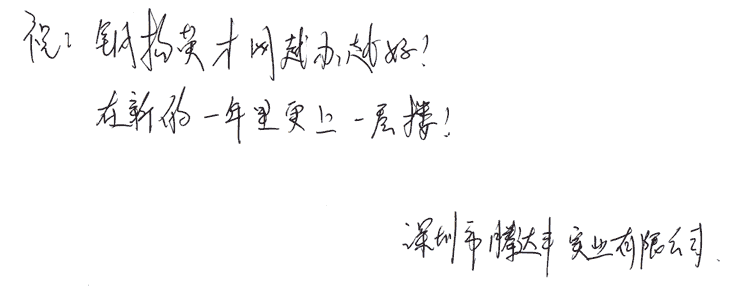 祝：钢构英才网越办越好！
在新的一年里更上一层楼！
深圳市腾达丰实业有限公司.